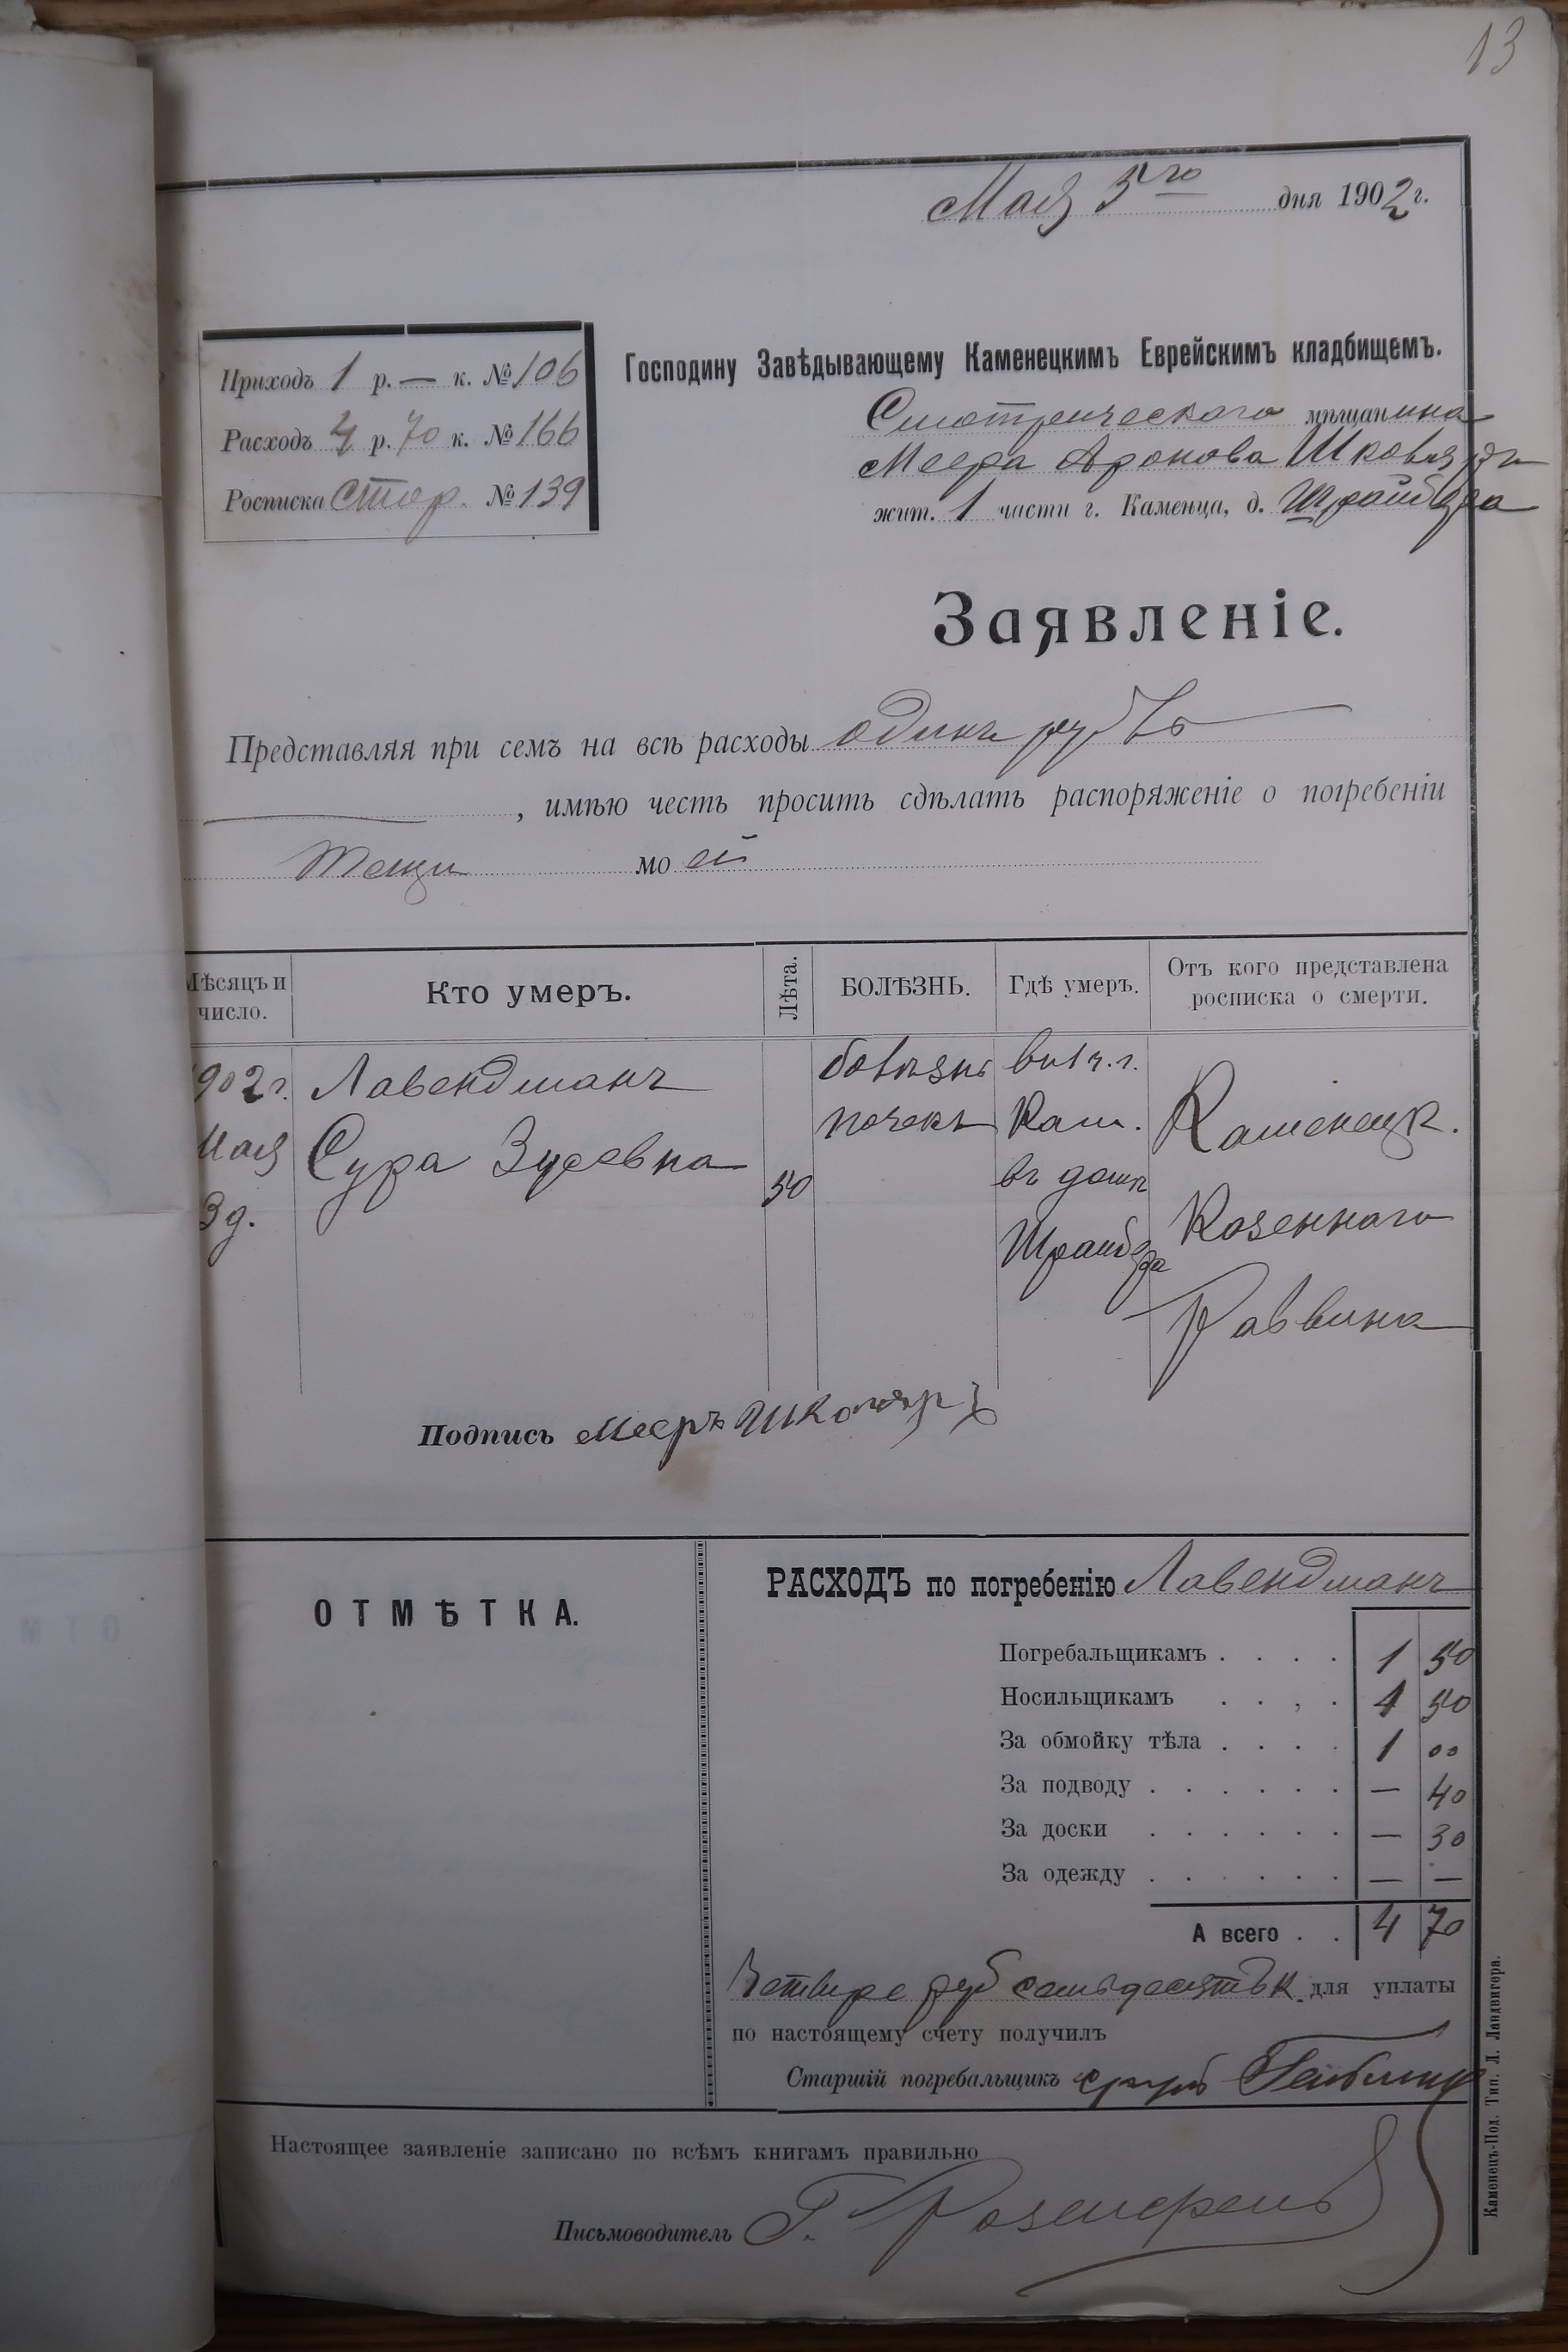 13
Мая 5го дня 1902 г.
Приходъ 1 р. — к. № 106
Расходъ 4 р. 70 к. № 166
Росписка стор. № 139
Господину Завѣдывающему Каменецкимъ Еврейскимъ кладбищемъ.
Смотрическаго мѣщанина
Меера Аронова
жит. 1 части г. Каменца, д. Шрайбера
Заявленіе.
Представляя при семъ на всѣ расходы одинъ рубль
, имѣю честь просить сдѣлать распоряженіе о погребеніи
тещи моей
Мѣсяцъ и число.
Кто умеръ.
Лѣта.
БОЛѢЗНЬ.
Гдѣ умеръ.
Отъ кого представлена росписка о смерти.
1902 г.
Мая
3 д.
Лавендманъ
Сура Зусевна
50
болѣзнь
почекъ
въ 1 ч. г.
Кам.
въ домѣ
Шрайбера
Каменецк.
Казеннаго
Раввина
Подпись Мееръ
ОТМѢТКА.
РАСХОДЪ по погребенію Лавендманъ
Погребальщикамъ . . . . 1 50
Носильщикамъ . . , . 1 50
За обмойку тѣла . . . . 1 00
За подводу . . . . . . — 40
За доски . . . . . . — 30
За одежду . . . . . . — —
А всего . . 4 70
Четыре руб семьдесятъ к. для уплаты
по настоящему счету получилъ
Старшій погребальщикъ
Настоящее заявленіе записано по всѣмъ книгамъ правильно
Письмоводитель Г.
Каменецъ-Под. Тип. Л. Ландвигера.